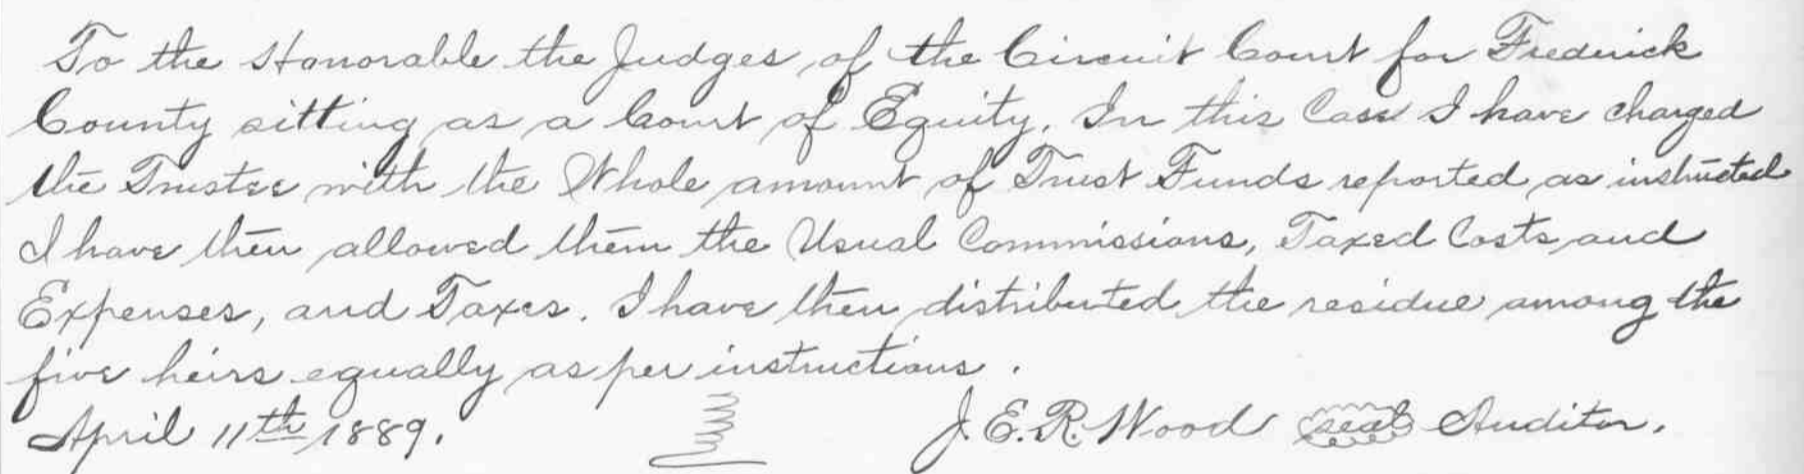 To the Honorable the Judges of the Circuit Court for Frederick
County sitting as a Court of Equity. In this Case I have charged
the Trustee with the Whole amount of Trust Funds reported as instructed
I have then allowed them the Usual Commissions, Taxed Costs and
Expenses, and Taxes. I have then distributed the residue among the
five heirs equally as per instructions.
April 11th 1889. J. E. R. Wood seal Auditor.